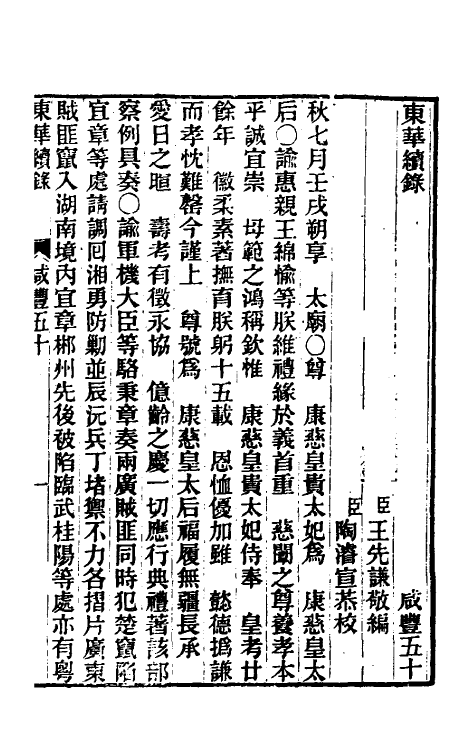 東華續錄 咸豐五十
臣王先謙敬編
臣陶濬宣恭校
秋七月壬戌朔享 太廟〇尊 康慈皇貴太妃為 康慈皇太
后〇諭惠親王綿愉等朕維禮緣於義首重 慈闈之尊養孝本
乎誠宜崇 母範之鴻稱欽惟 康慈皇貴太妃侍奉 皇考廿
餘年 徽柔素著撫育朕躬十五載 恩恤優加雖 懿德撝謙
而孝忱難罄今謹上 尊號為 康慈皇太后福履無疆長承
愛日之暄 壽考有徵永協 億齡之慶一切應行典禮著該部
察例具奏〇諭軍機大臣等駱秉章奏兩廣賊匪同時犯楚竄陷
宜章等處請調回湘勇防勦並辰沅兵丁堵禦不力各摺片廣東
賊匪竄入湖南境內宜章郴州先後被陷臨武桂陽等處亦有粵
東華續錄 咸豐五十 一